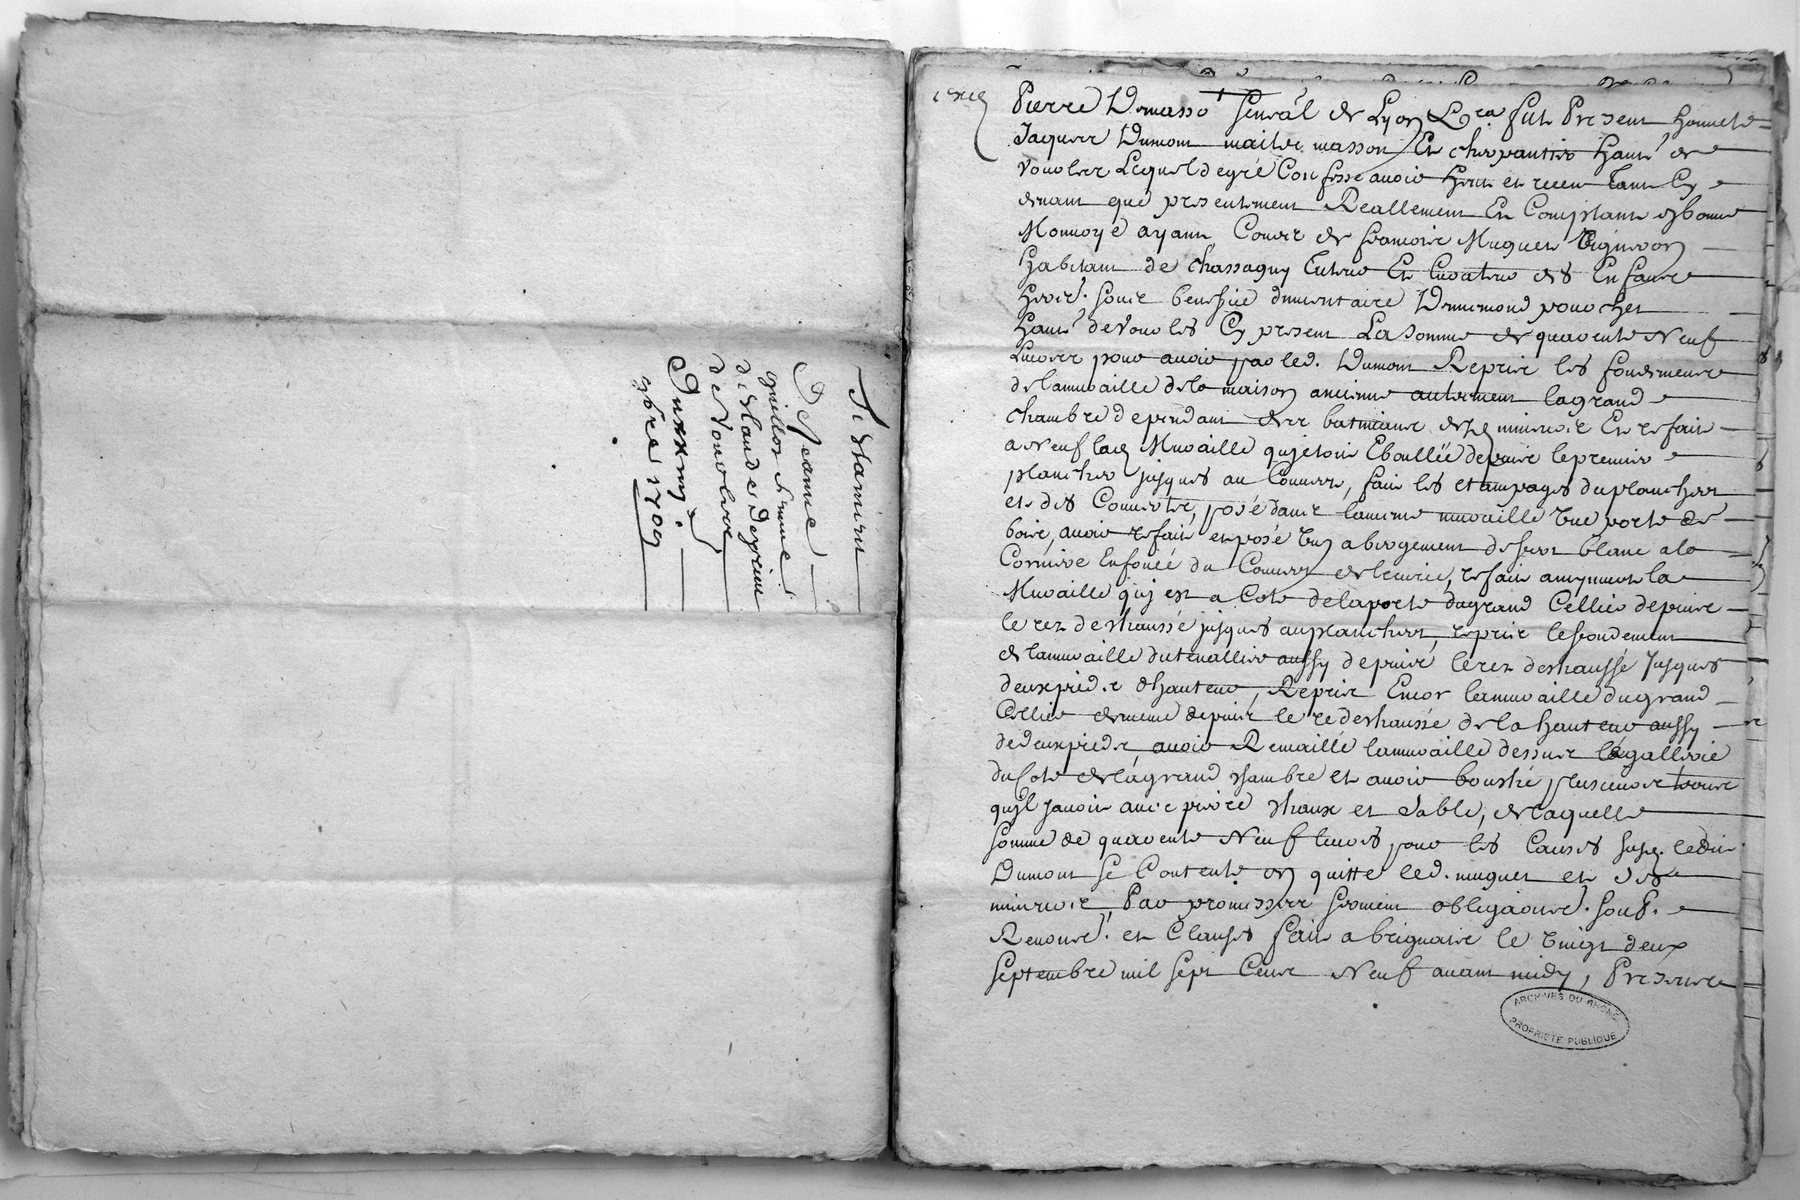 Testament
De Jeanne
Guillon femme
de Claude Depriue
de Vouoles
Du xxiiij.e
9bre 1709
Pierre Dumasso Senral de Lyon Fut Present honnete
Jaques Dumont maitre masson Et cherpantier habt de
Vouoles Lequel de gré Confesse auoir heu et receu tant Cy
deuant que presentement Reallement Et Comptant en bonne
Monnoye ayant Cours de francois Muguet Vigneron
habitant de Chassagny Tuteur Et Curateur des Enfans
heoirs. souz benefice dinuentaire
habt de Vouoles Cy present La somme de quarente Neuf
Liures pour auoir par led. Dumont Repris les fondements
de la muraille de la maison ancienne autrement la grand
chambre dependant des batiments desd. mineurs Et refait
a Neuf lad. Muraille qui etoit Eboullée depuis le premier
plancher jusques au Couuert, fait les etampages du plancher
et des Couuerts, posé dans la meme muraille Vne porte de
bois, auoir refait et posé Vn abregement de fert blanc a la
Corniere Enfoncé du Couuert de lecurie, refait a
Muraille qui est a Coté de la porte du grand Cellier depuis
le rez de chaussé jusques au plancher, repris les fondement
de la muraille du tenallier aussy depuis le rez de chaussé Jusques
deux pieds d'hauteur, Repris Encor la muraille du grand
Cellier de meme depuis le re de chaussé de la hauteur aussy
de deux pieds auoir Remaillé la muraille dessus la gallerie
du Coté de la grand chambre et auoir bouché plusieurs trous
quil y auoit auec pierre chaux et sable, de laquelle
somme de quarente Neuf liures pour les Causes susd. ledit
Dumont se Contente en quitte led. muguet et sesd.
mineurs, Par promesses serment obligaons. souz.
Renons. et Clauses fait a brignais le vingt deux
Septembre mil sept Cents Neuf auant midy, Presents
ARCHIVES DU RHONE
PROPRIETE PUBLIQUE